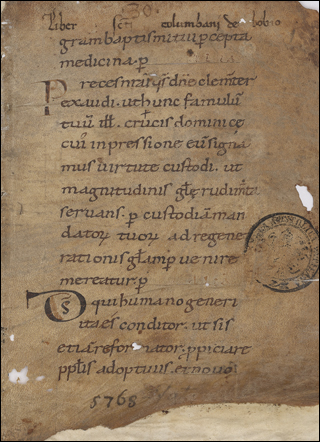 30.
Liber scti columbani de bobio
gram baptismi tui percepta
medicina. p
Preces nras qs dne clementer
exaudi. ut hunc famulũ
tuũ ill. crucis dominicę
cuĩ inpressione eũ signa
mus virtute custodi. ut
magnitudinis glę rudimta
servans. p custodiã man
datoru tuoru ad regene
rationis glam pvenire
mereatur. p
Ds qui humano generi
ita es conditor. ut sis
etiã reformator. ppiciare
pplis adoptivis. et novo
5768